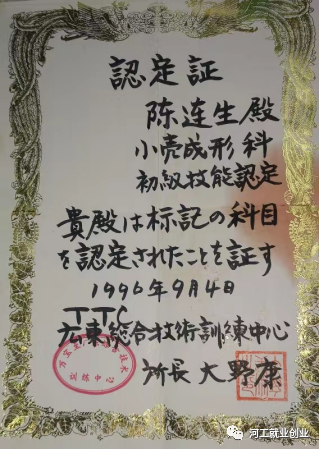 認定証
陈连生殿
小壳成形科
初級技能認定
貴殿は标記の科目
を認定されたことを証す
1996年9月4日
TTC
広東総合技術訓練中心
所長 大野康
訓練中心
河工就业创业